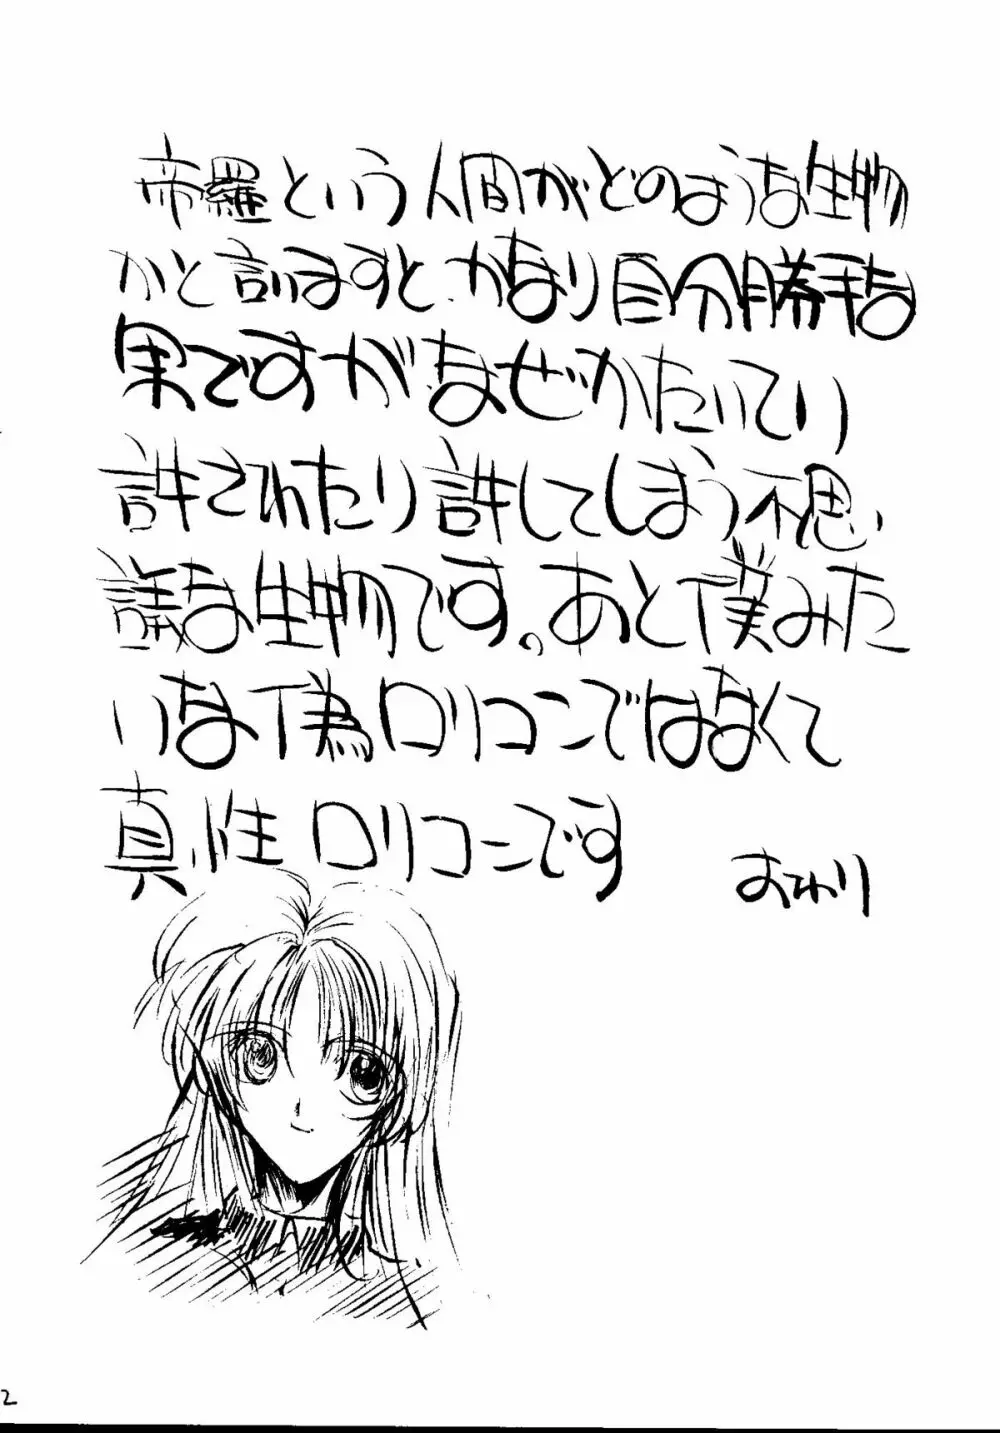 帝羅という人間がどのような生物
かと言いますと、かなり自分勝手な
果ですが、なぜかたいてい
許されたり許してしまう不思
議な生物です。あと僕みた
いな偽ロリコンではなくて
真性ロリコーンです
おわり
2